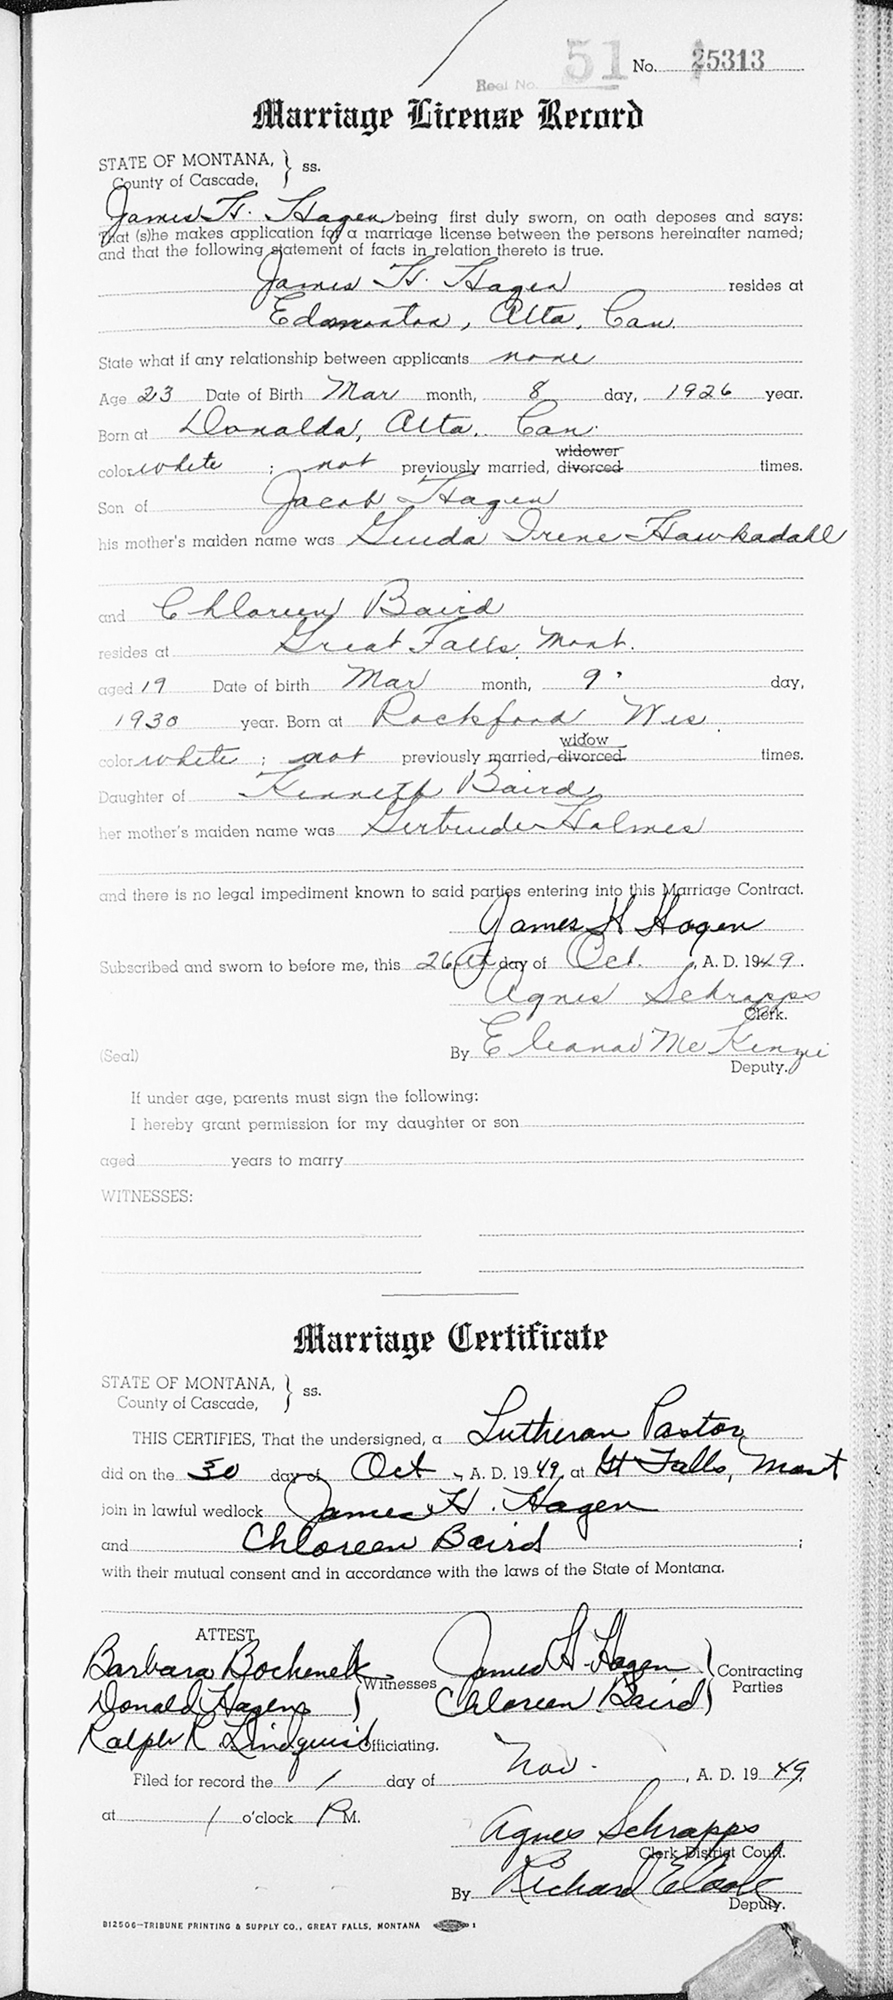 Reel No. 51 No. 25313
Marriage License Record
STATE OF MONTANA, } ss.
County of Cascade,
James H. Hagen being first duly sworn, on oath deposes and says:
That (s)he makes application for a marriage license between the persons hereinafter named;
and that the following statement of facts in relation thereto is true.
James H. Hagen resides at
Edmonton, Alta, Can.
State what if any relationship between applicants none
Age 23 Date of Birth Mar month, 8 day, 1926 year.
Born at Donalda, Alta. Can.
widower
color white ; not previously married, divorced times.
Son of Jacob Hagen
his mother's maiden name was Irene Hawkadahl
and Chloreen Baird
resides at Great Falls, Mont.
aged 19 Date of birth Mar month, 9 day,
1930 year. Born at Rockford Wis.
widow
color white ; not previously married, divorced times.
Daughter of Kenneth Baird
her mother's maiden name was Gertrude Holmes
and there is no legal impediment known to said parties entering into this Marriage Contract.
James H Hagen
Subscribed and sworn to before me, this 26th day of Oct. , A. D. 1949.
Agnes Schrapps
Clerk.
(Seal) By Eleanor McKenzie
Deputy.
If under age, parents must sign the following:
I hereby grant permission for my daughter or son
aged years to marry
WITNESSES:
Marriage Certificate
STATE OF MONTANA, } ss.
County of Cascade,
THIS CERTIFIES, That the undersigned, a Lutheran Pastor
did on the 30 day of Oct , A. D. 1949, at Gt Falls, Mont
join in lawful wedlock James H. Hagen
and Chloreen Baird ;
with their mutual consent and in accordance with the laws of the State of Montana.
ATTEST
Barbara Bochenek } Witnesses James H. Hagen } Contracting
Donald Hagen Chloreen Baird Parties
Ralph R Lindquist Officiating.
Filed for record the 1 day of Nov. , A. D. 1949
at 1 o'clock P M.
Agnes Schrapps
Clerk District Court.
By Richard
Deputy.
B12506—TRIBUNE PRINTING & SUPPLY CO., GREAT FALLS, MONTANA 1